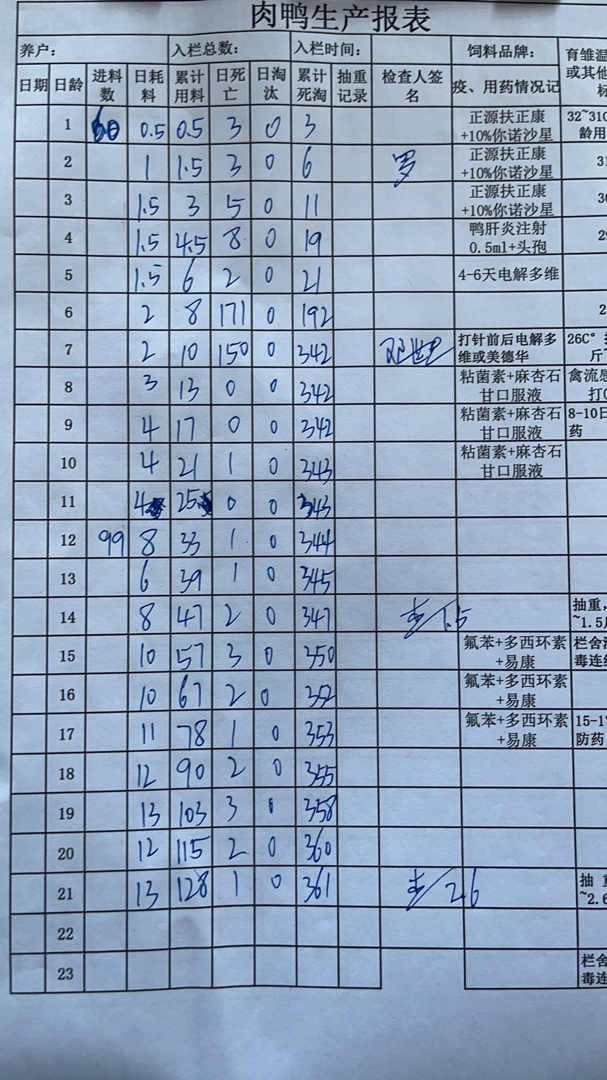 肉鸭生产报表
养户： 入栏总数： 入栏时间： 饲料品牌： 育雏温
日期 日龄 进料数 日耗料 累计用料 日死亡 日淘汰 累计死淘 抽重记录 检查人签名 疫、用药情况记 或其他 标
1 60 0.5 0.5 3 0 3 正源扶正康+10%你诺沙星 32~31C 龄用
2 1 1.5 3 0 6 罗 正源扶正康+10%你诺沙星 31
3 1.5 3 5 0 11 正源扶正康+10%你诺沙星 30
4 1.5 4.5 8 0 19 鸭肝炎注射0.5ml+头孢 29
5 1.5 6 2 0 21 4-6天电解多维
6 2 8 171 0 192 2
7 2 10 150 0 342 打针前后电解多维或美德华 26C° 斤
8 3 13 0 0 342 粘菌素+麻杏石甘口服液 禽流感 打0
9 4 17 0 0 342 粘菌素+麻杏石甘口服液 8-10日 药
10 4 21 1 0 343 粘菌素+麻杏石甘口服液
11 4 25 0 0 343
12 99 8 33 1 0 344
13 6 39 1 0 345
14 8 47 2 0 347 1.5 抽重， ~1.5斤
15 10 57 3 0 350 氟苯+多西环素+易康 栏舍消 毒连续
16 10 67 2 0 352 氟苯+多西环素+易康
17 11 78 1 0 353 氟苯+多西环素+易康 15-17 防药
18 12 90 2 0 355
19 13 103 3 0 358
20 12 115 2 0 360
21 13 128 1 0 361 2.6 抽重 ~2.6
22
23 栏舍 毒连